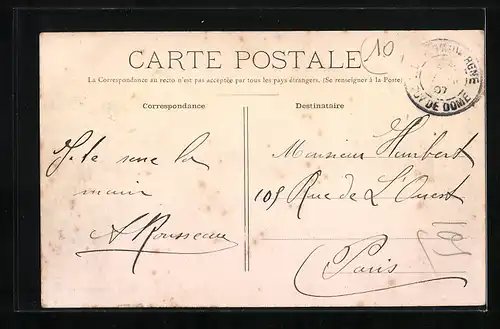 CARTE POSTALE
10
La Correspondance au recto n'est pas acceptée par tous les pays étrangers. (Se renseigner à la Poste)
Correspondance
Destinataire
07
PUY DE DOME
Je te serre la
main
A Rousseau
Monsieur Humbert
105 Rue de L'Ouest
Paris
105